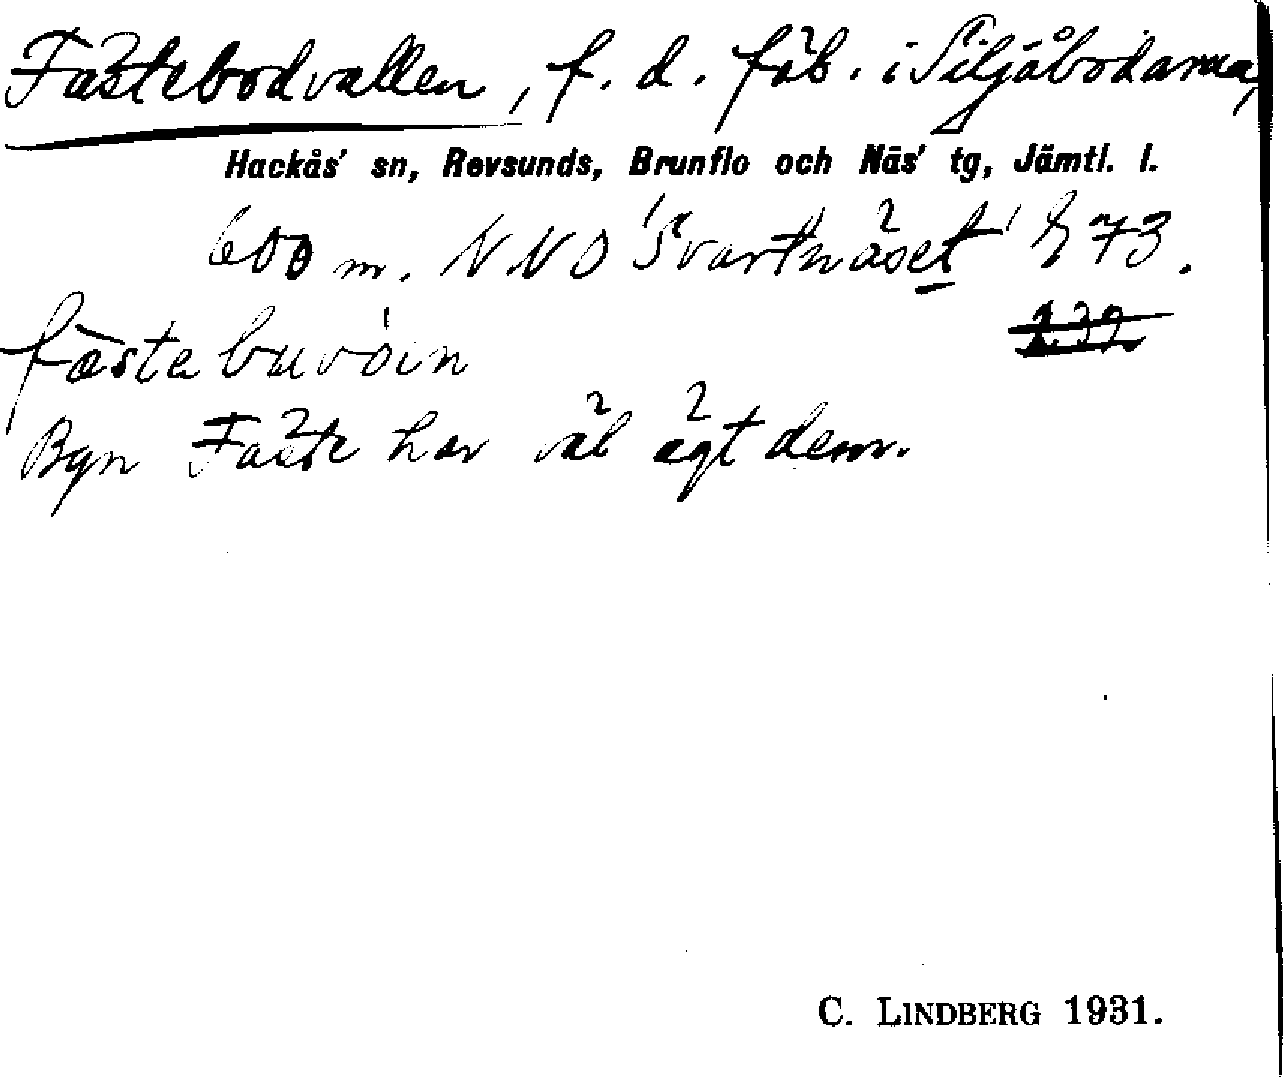 Fästebodvallen, f. d. fäb. i Siljåbodarna,
Hackås' sn, Revsunds, Brunflo och Näs' tg, Jämtl. l.
600 m. NNO 'Svartnäset' 73.
fæstebuvóin
Byn Fäste har väl ägt den.
C. LINDBERG 1931.